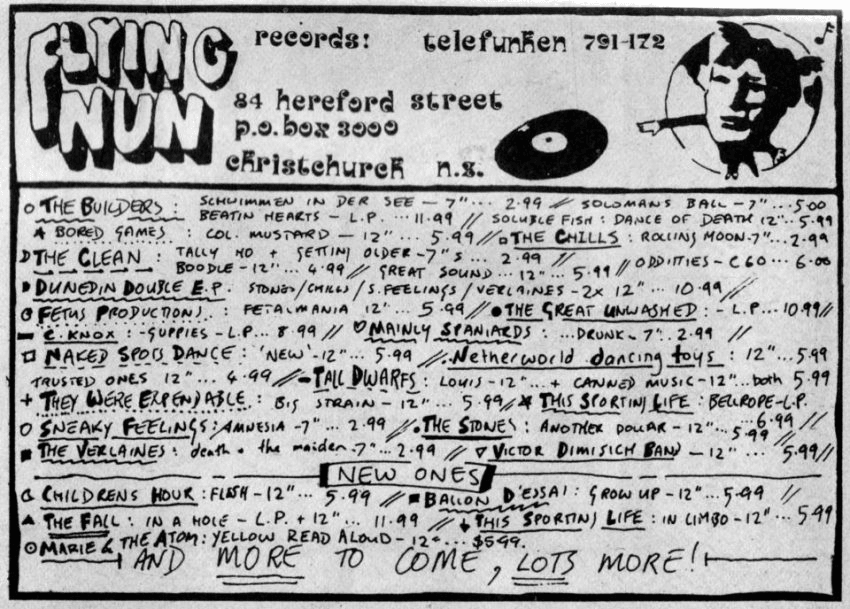 FLYING NUN
records: telefunken 791-172
84 hereford street
p.o. box 3000
christchurch n.z.
THE BUILDERS: SCHWIMMEN IN DER SEE - 7"... 2.99 // SOLOMANS BALL - 7"... 5.00
BEATIN HEARTS - L.P. ... 11.99 // SOLUBLE FISH: DANCE OF DEATH 12"... 5.99
BORED GAMES: COL. MUSTARD - 12" 5.99 // THE CHILLS: ROLLING MOON-7"... 2.99
THE CLEAN: TALLY HO + GETTING OLDER - 7"S ... 2.99 // ODDITIES - C60 ... 6.00
BOODLE - 12"... 4.99 // GREAT SOUND ... 12"... 5.99 //
DUNEDIN DOUBLE E.P. STONES/CHILLS/S.FEELINGS/VERLAINES - 2x 12" ... 10.99 //
FETUS PRODUCTIONS: FETALMANIA 12" ... 5.99 // THE GREAT UNWASHED: - L.P... 10.99 //
C. KNOX: - GUPPIES - L.P... 8.99 // MAINLY SPANIARDS: ...DRUNK - 7". 2.99 //
NAKED SPOTS DANCE: 'NEW' - 12"... 5.99 // Netherworld dancing toys: 12"... 5.99
TRUSTED ONES 12"... 4.99 // TALL DWARFS: LOUIS - 12"... + CANNED MUSIC - 12"... both 5.99
THEY WERE EXPENDABLE: BIG STRAIN - 12" 5.99 // THIS SPORTING LIFE: BELLROPE - L.P. ...6.99 //
SNEAKY FEELINGS: AMNESIA - 7" ... 2.99 // THE STONES: ANOTHER DOLLAR - 12"... 5.99 //
THE VERLAINES: death + the maiden - 7"... 2.99 // VICTOR DIMISICH BAND - 12" ... 5.99 //
NEW ONES
CHILDRENS HOUR: FLESH - 12"... 5.99 // BALLON D'ESSAI: GROW UP - 12"... 5.99 //
THE FALL: IN A HOLE - L.P. + 12"... 11.99 // THIS SPORTING LIFE: IN LIMBO - 12"... 5.99
MARIE & THE ATOM: YELLOW READ ALOUD - 12" ... $5.99.
AND MORE TO COME, LOTS MORE!